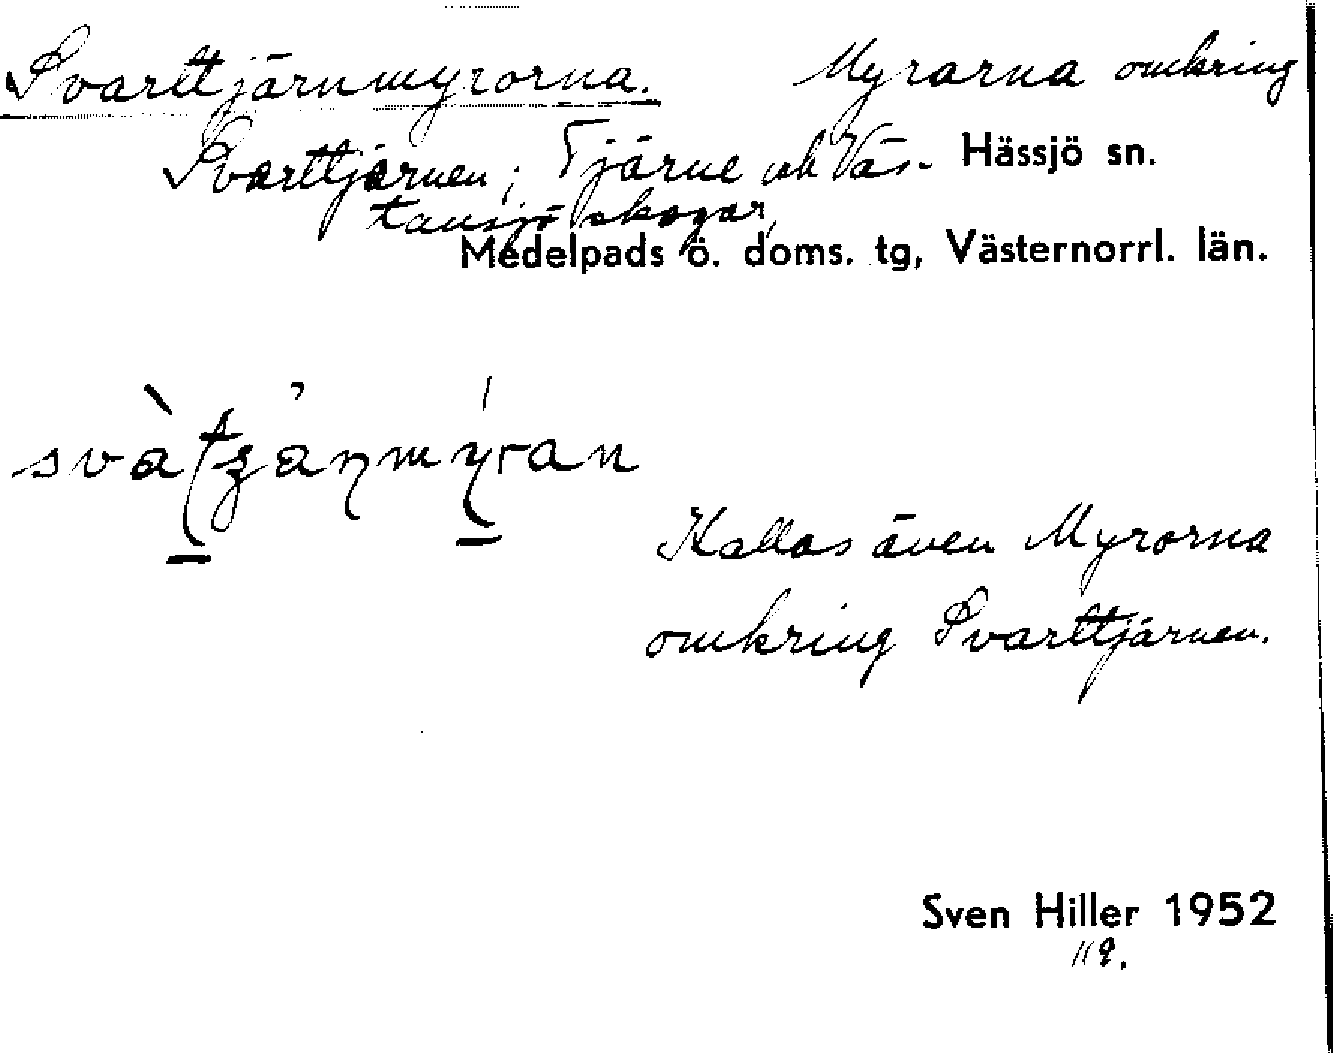 Svarttjärnmyrorna. Myrarna omkring
Svarttjärnen; Tjärne och Väs- Hässjö sn.
tansjö skogar,
Medelpads ö. doms. tg, Västernorrl. län.
Kallas även Myrorna
omkring Svarttjärnen.
Sven Hiller 1952
119.